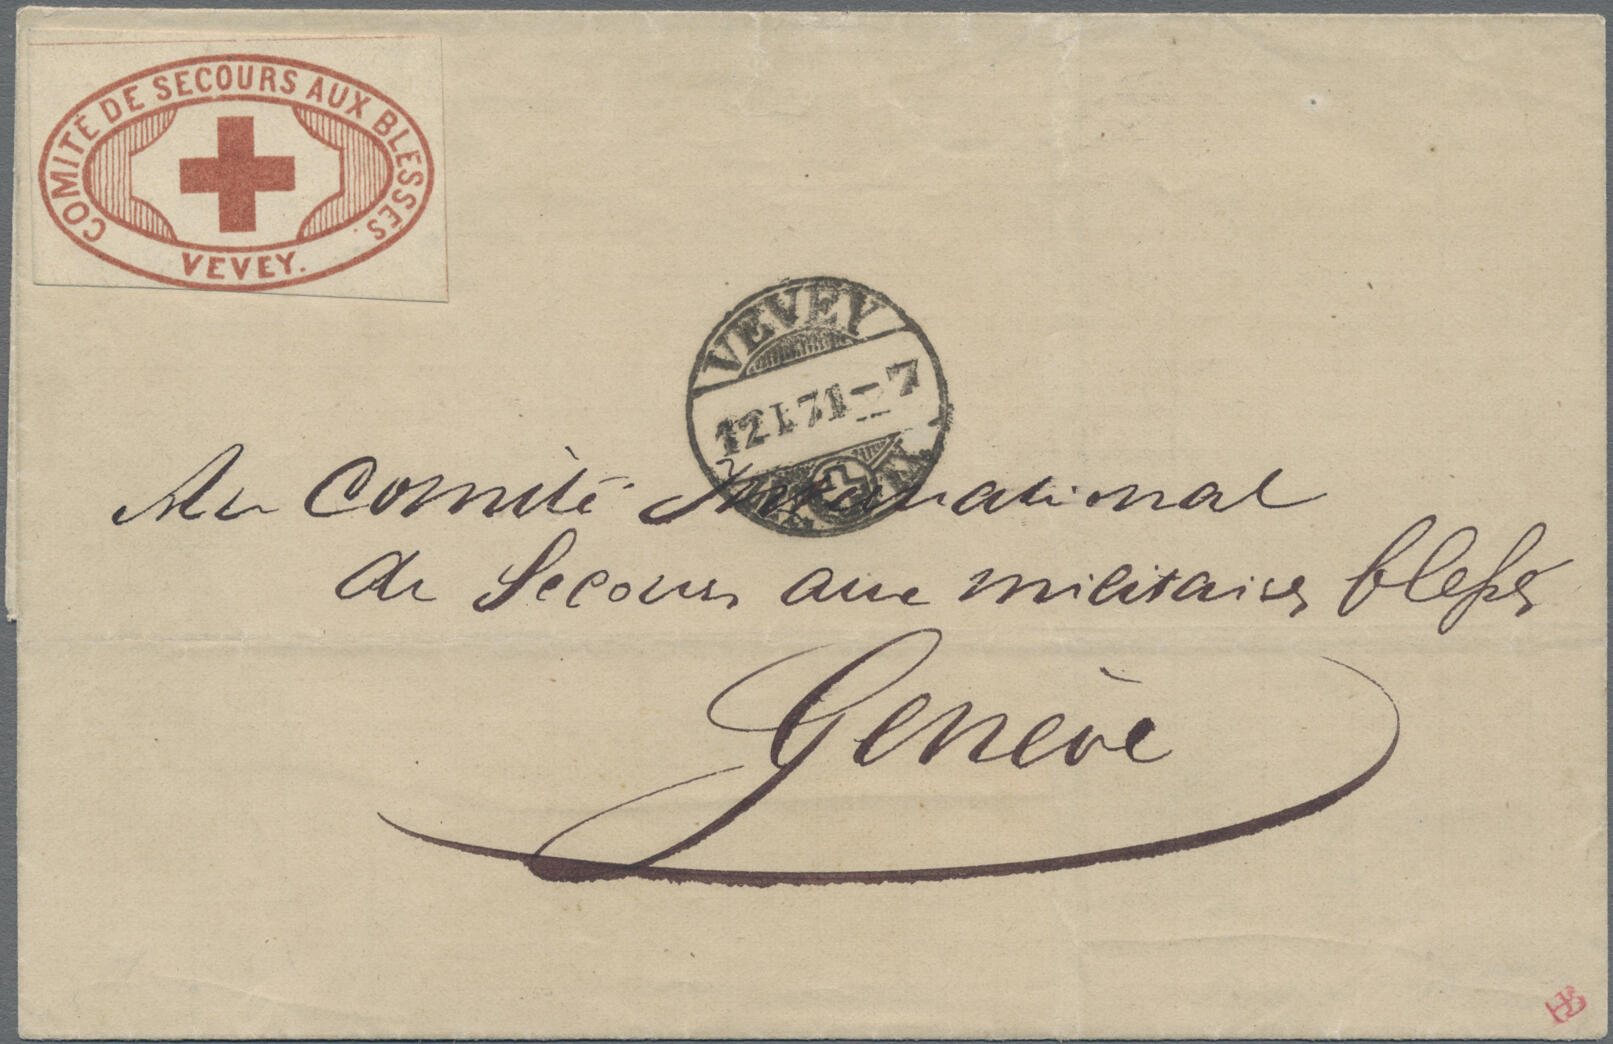 COMITÉ DE SECOURS AUX BLESSÉS.
VEVEY.
VEVEY
12 I 71 – 7
Au Comité International
de Secours aux militaires blessés
Genève
HB